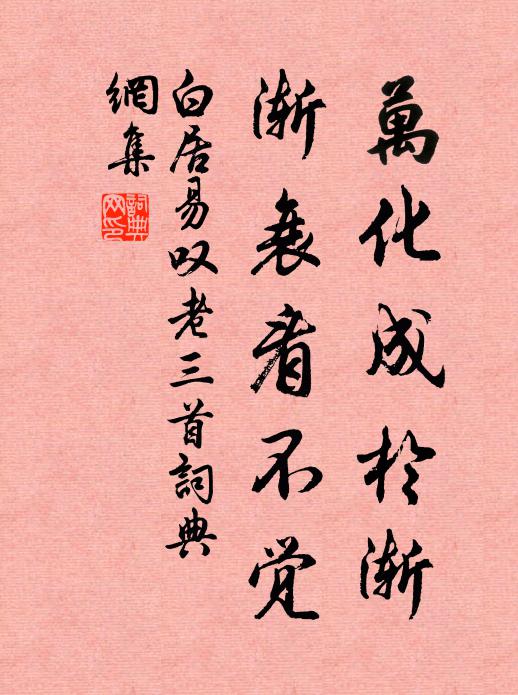 萬化成於漸
漸衰看不覚
白居易叹老三首詞典
網集
詞典
网印